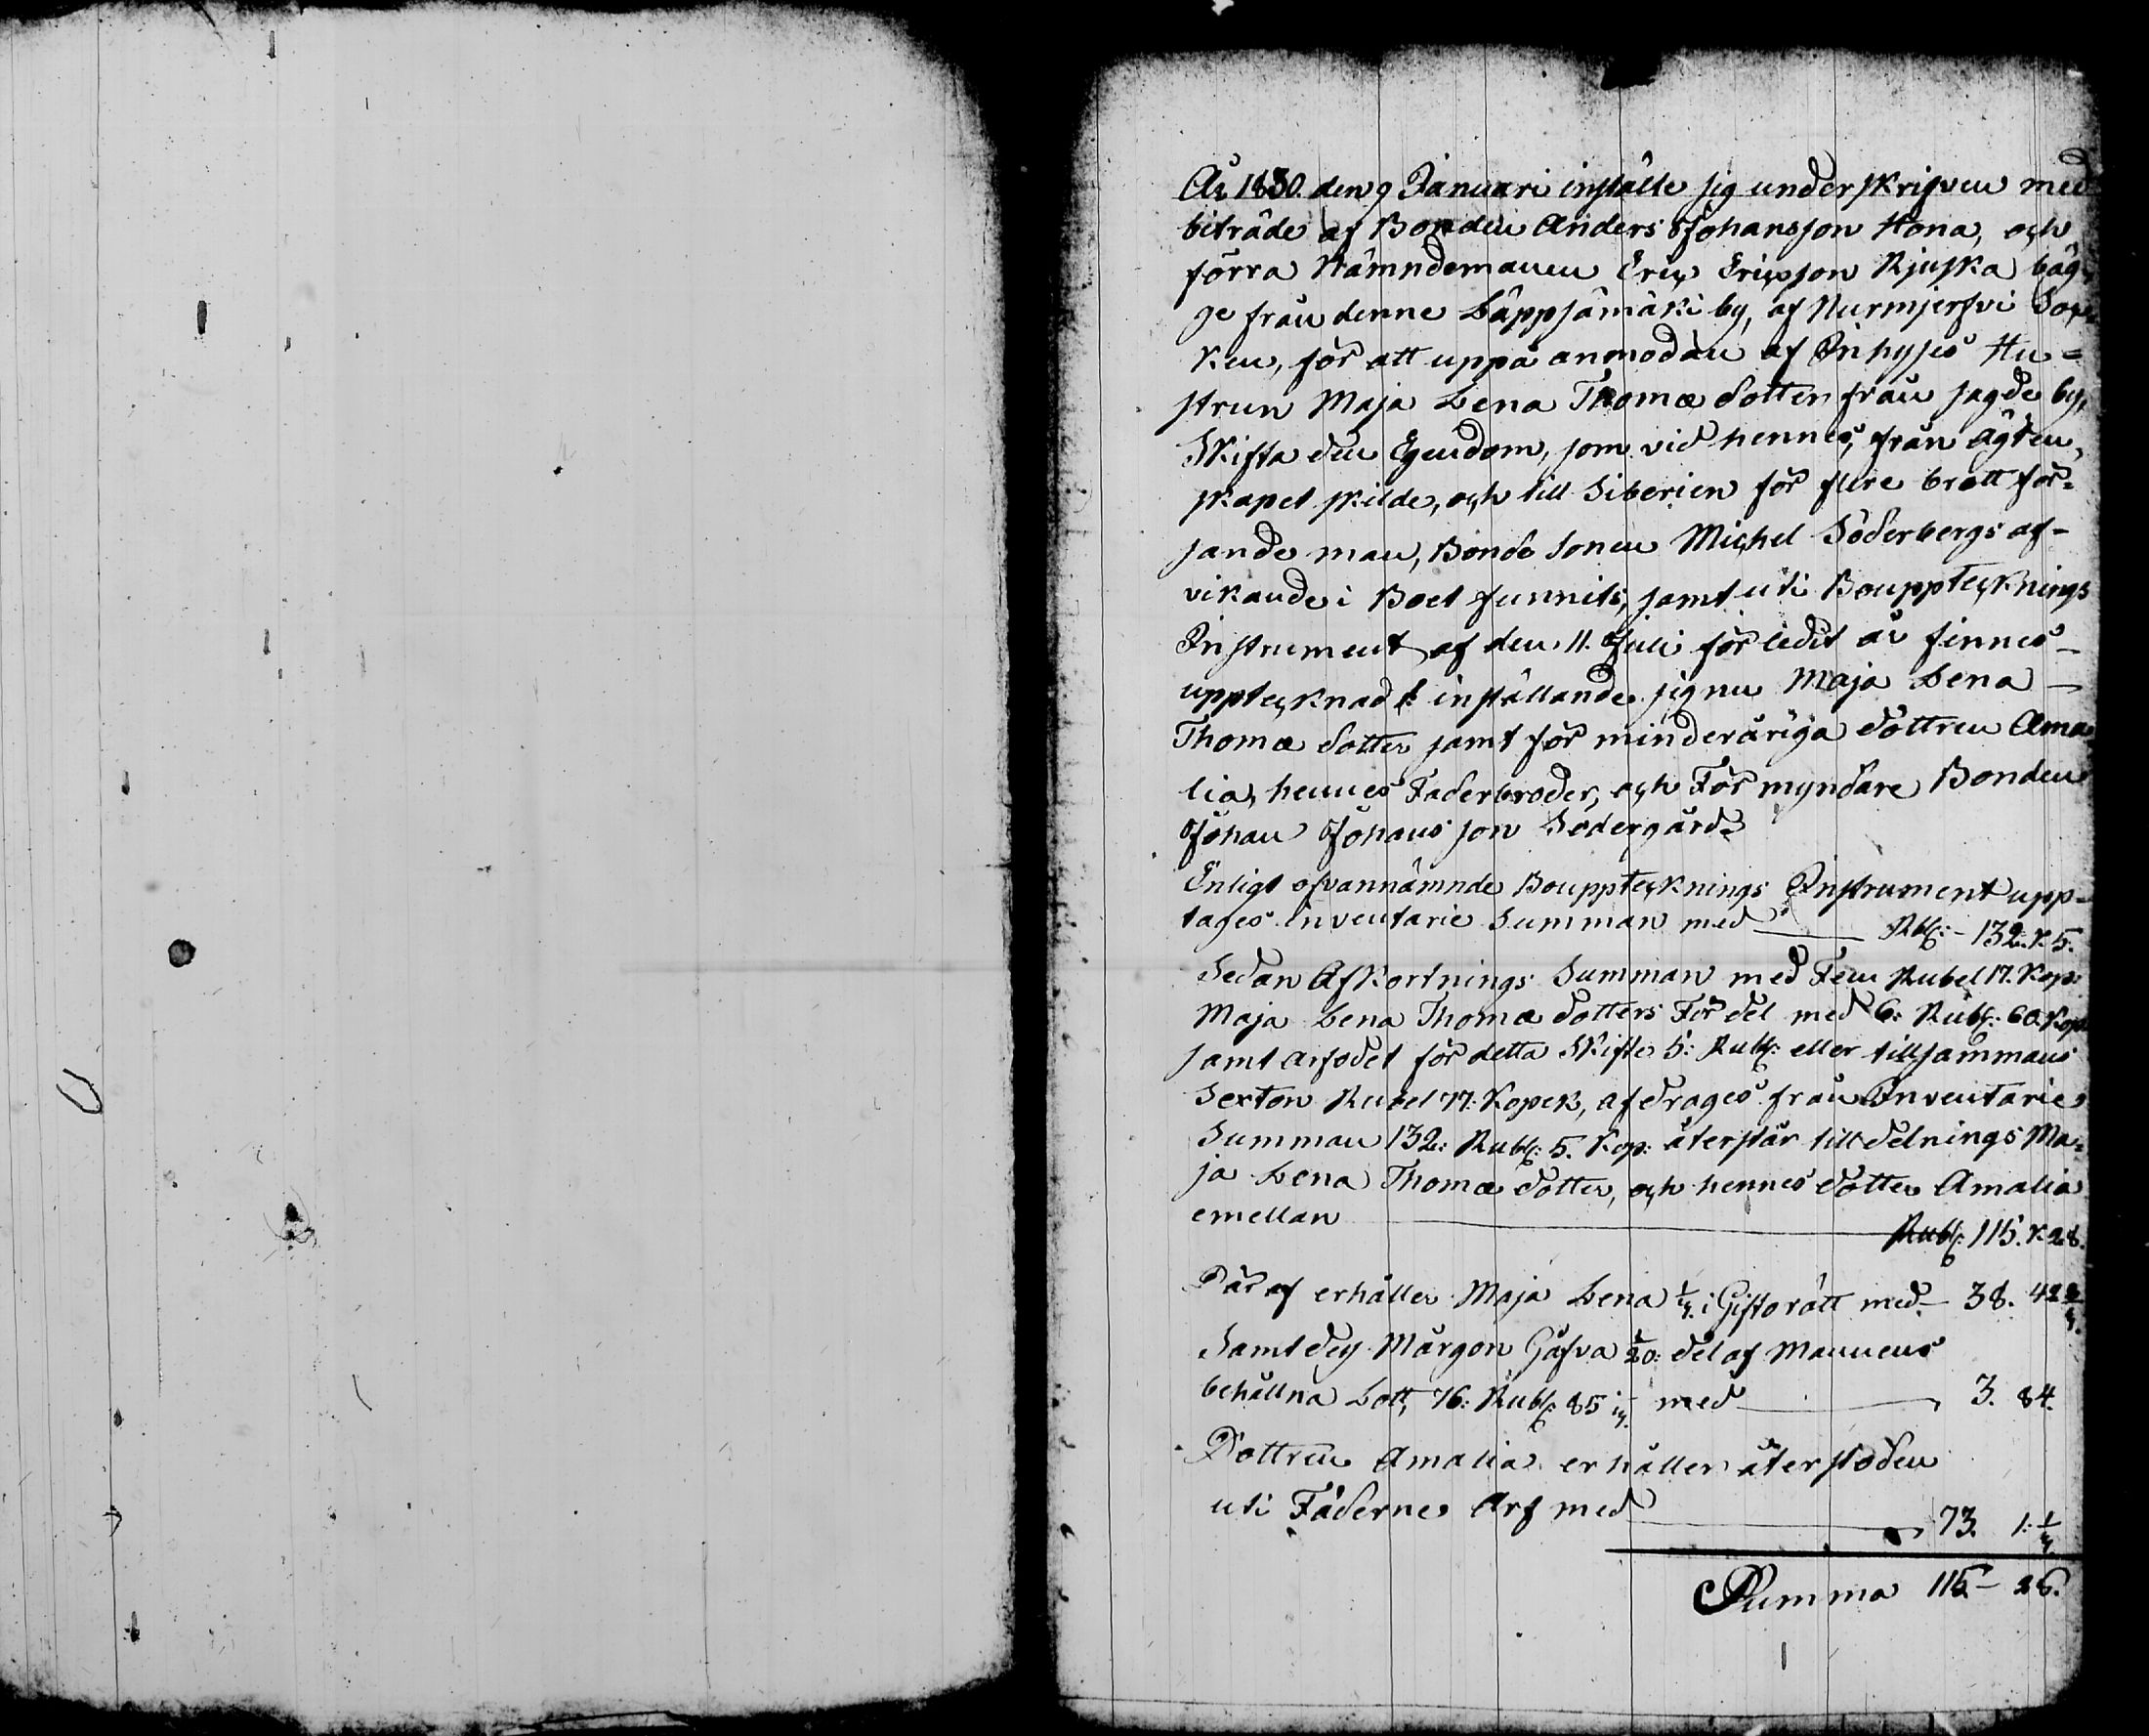 År 1830. den 9 Januari instälte sig underskrifven med
biträde af Bonden Anders Johansson Hona, och
förra Nämndemannen Eric Ericsson Kjuska bäg-
ge från denne Läppsämäki by, af Nurmjerfvi Soc-
ken, för att uppå anmodan af Inhyses Hu=
strun Maja Lena Thomæ dotter från sagde by,
Skifta den Egendom, som vid hennes, från ägten-
skapet skilde, och till Siberien för flere brott för=
sande man, Bonde Sonen Michel Söderbergs af-
vikande i Boet funnits, samt uti Boupptecknings
Instrument af den 11. Juli förledit år finnes
upptecknad t: inställande sig nu Maja Lena
Thomæ dotter samt för minderåriga dottren Ama
lia, hennes Faderbroder, och Förmyndare Bonden
Johan Johansson Sodergård.
Enligt ofvannämnde Bouppteknings Instrument upp-
tages inventarie Summan med Rbl: 132. K. 5.
Sedan Afkortnings Summan med Fem Rubel 17. Kop:
Maja Lena Thomæ dotters Fördel med 6: Rubl: 60. Kop:
samt arfodet för detta Skifte 5: Rubl: eller tillsammans
Sexton Rubel 77: Kopek, afdrages från Inventarie
Summan 132: Rubl: 5. Kop: återstår till delnings Ma=
ja Lena Thomæ dotter, och hennes dotter Amalia
emellan Rubl: 115. K 28.
Där af erhåller Maja Lena 1/3. i Giftorätt med 38. 42 2/3.
Samt dess Morgon Gåfva 1/20: del af Mannens
behållna Lott, 76: Rubl: 85 1/3. med 3. 84.
Dottren Amalia erhåller återstoden
uti Fäderne Arf med 73. 1: 1/3.
Summa 115.- 28.